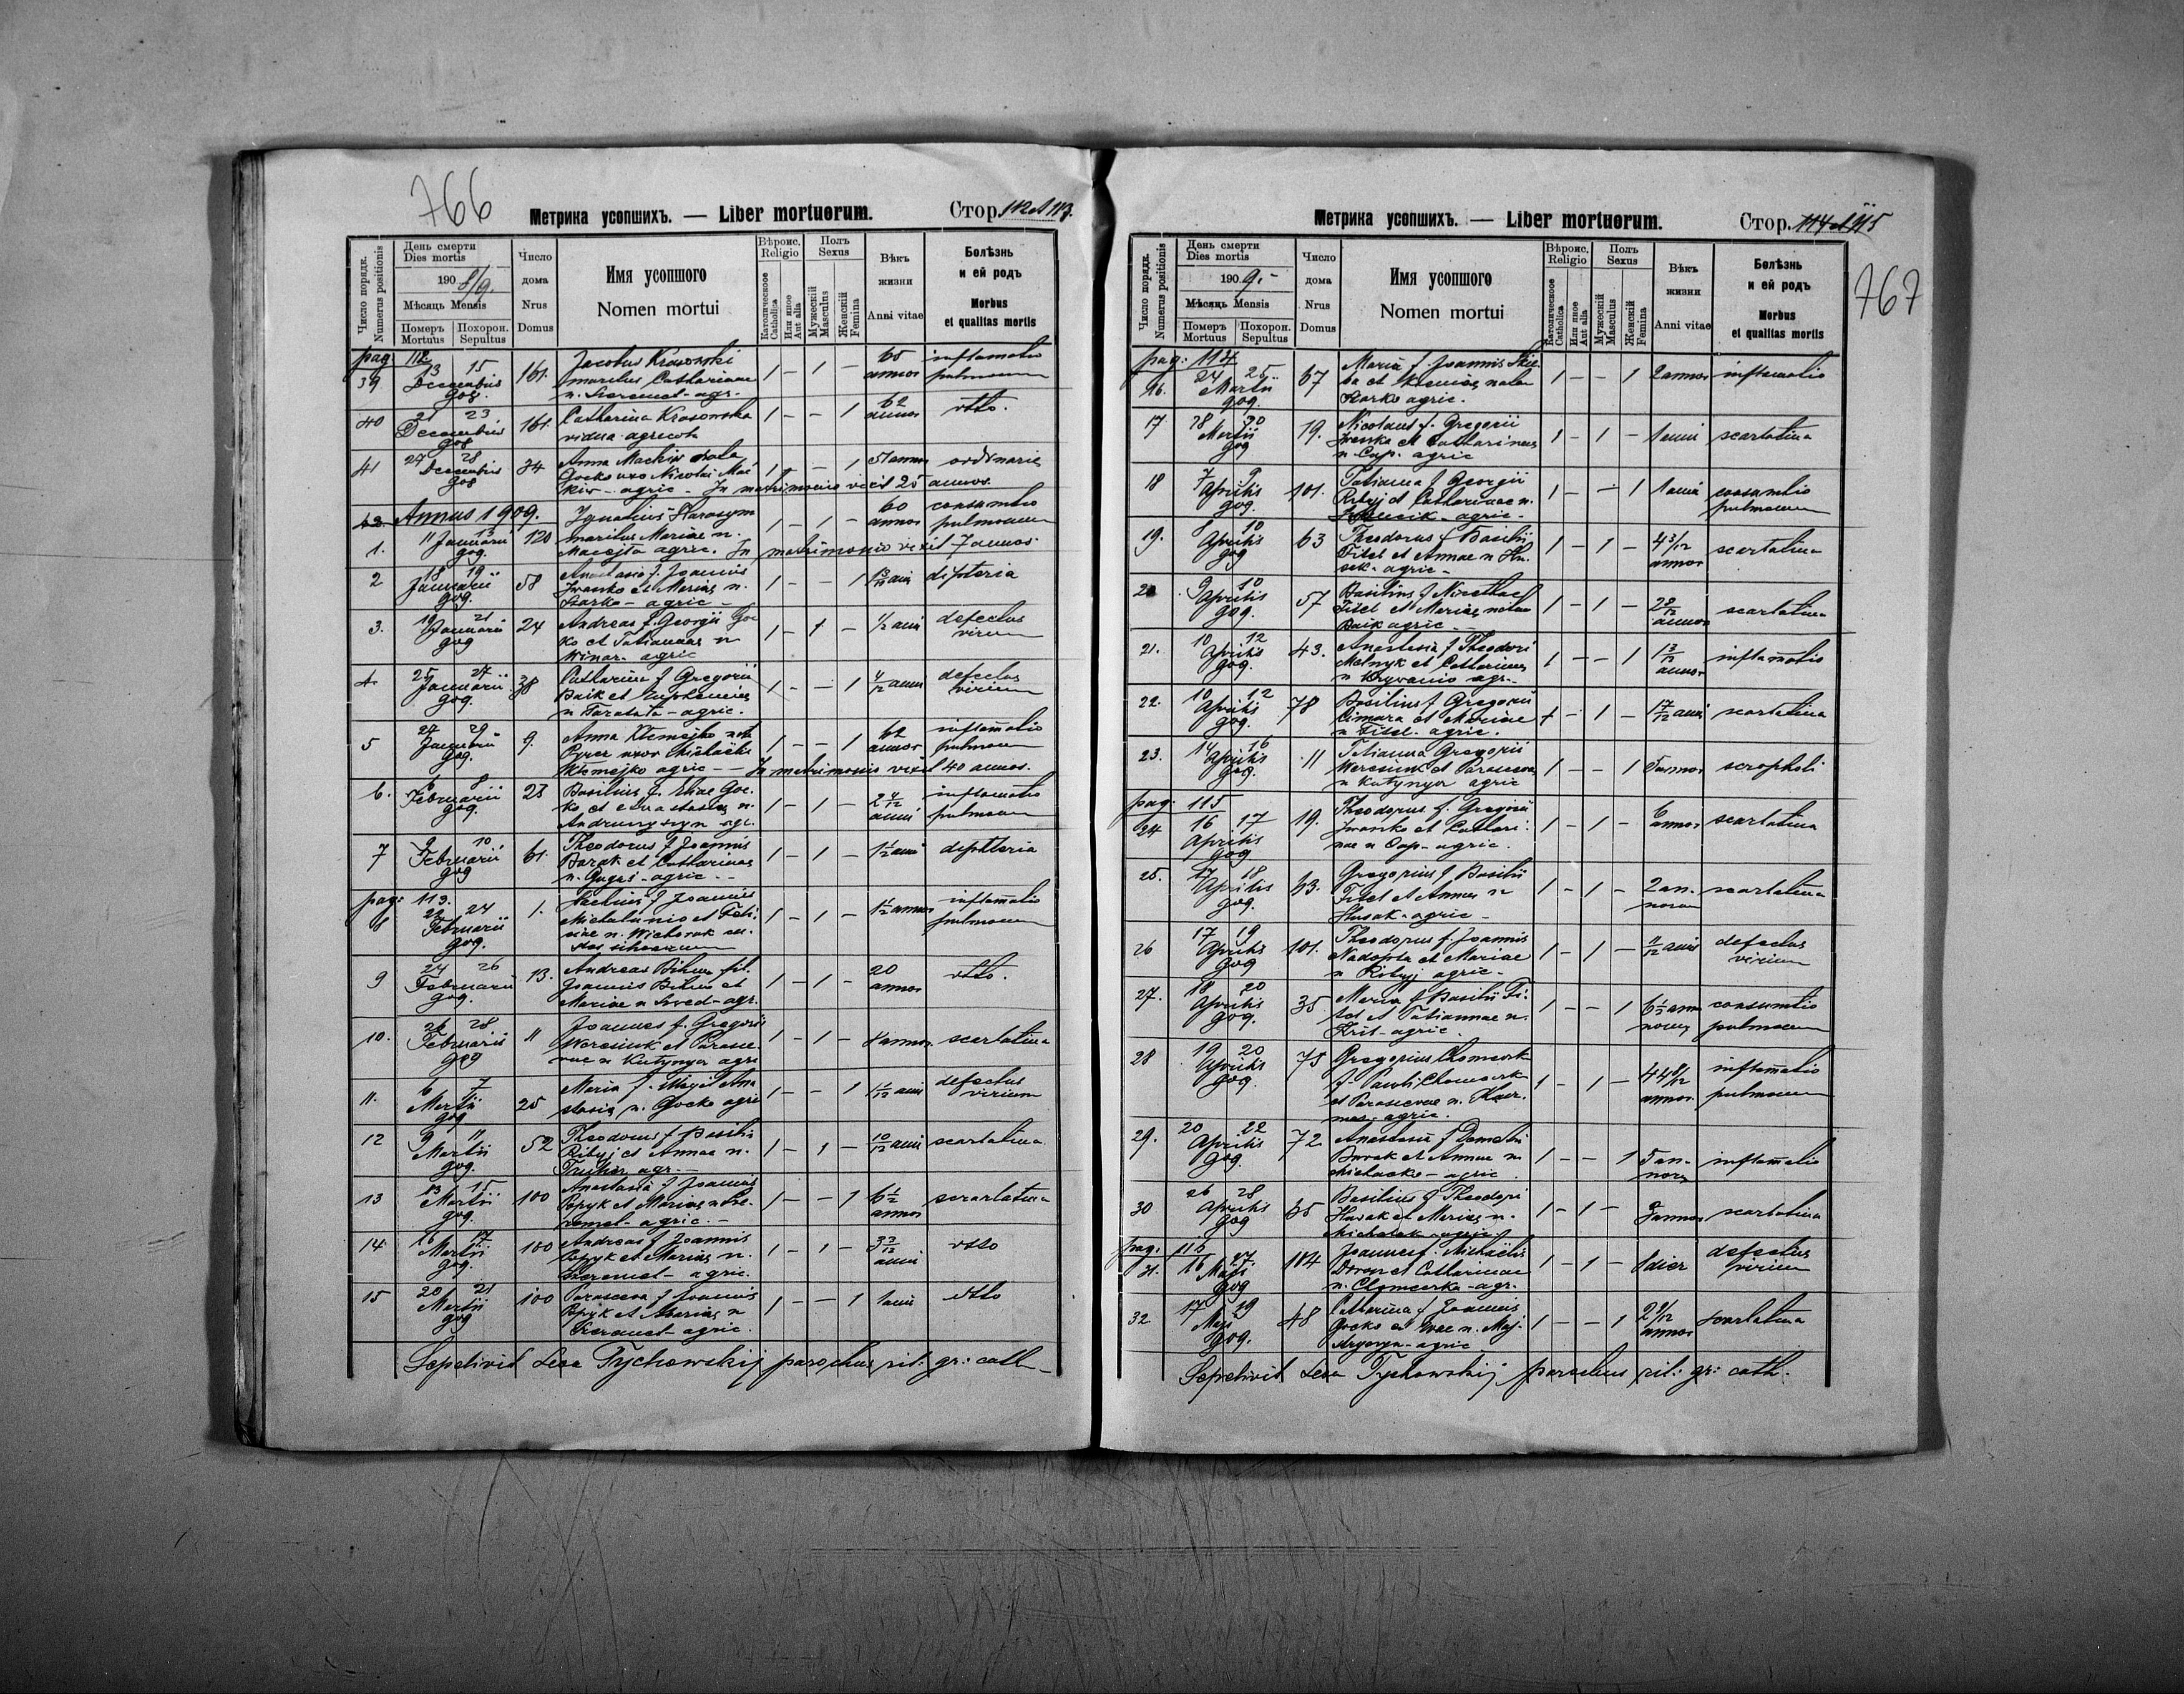 766
Метрика усопшихъ. — Liber mortuorum.
Стор. 112 et 113.
Число порядк. Numerus positionis
День смерти
Dies mortis
190 8/9.
Мѣсяць Mensis
Померъ Mortuus
Похорон. Sepultus
Число дома
Nrus Domus
Имя усопшого
Nomen mortui
Вѣроис. Religio
Католическое Catholica
Или иное Aut alia
Полъ Sexus
Мужескій Masculus
Женскій Femina
Вѣкъ жизни
Anni vitae
Болѣзнь и ей родъ
Morbus et qualitas mortis
pag. 112
39 13 15 Decembris 908. 161. Jacobus Krasowski 1 - 1 - annos inflamatio
maritus Catharinae pulmonum
n. Szeremet - agr.
40 21 23 Decembris 908 161. Catharina Krasowska 1 - - 1 62 annos dtto.
vidua agricola
41 27 28 Decembris 908 34 Anna Mackiw nata 1 - - 1 51 annos ordinaria
Gocko uxor Nicolai Mac
kiw - agric - In matrimonio vixit 25 annos.
Annus 1909.
1. 11 13 Januarii 909. 120 Ignatius Harasym 1 - 1 - 60 annos consumtio
maritus Mariae n. pulmonum
agric. In matrimonio vixit 7 annos.
2 18 19 Januarii 909. 58 Anastasia f. Joannis 1 - - 1 anni difteria
Iwasko et Mariae n.
Szarko - agric -
3. 19 21 Januarii 909 24 Andreas f. Georgii Goc 1 - 1 - 1/2 anni defectus
ko et Tatiannae n virium
Winar - agric
4. 25 27 Januarii 909. 38 Catharina f Gregorii 1 - - 1 4/12 anni defectus
Baik et Euphemiae virium
n Taratata - agric.
5 27 29 Januarii 909. 9. Anna Klemejko nata 1 - - 1 62 annos inflamatio
uxor Michaëlis pulmonum
Klemejko agric - In matrimonio vixit 40 annos.
6. 6 8 Februarii 909. 23 Basilius f. Eliae Goc- 1 - 1 - 2 4/12 anni inflamatio
ko et Anastasiae n. pulmonum
agr.
7 9 10 Februarii 909 61. Theodorus f Joannis 1 - 1 - 1 1/2 anni diphteria
Burak et Catharinae
n. - agric -
pag: 113.
8 22 24 Februarii 909. 1. f Joannis 1 - 1 - 1 1/2 annos inflamatio
et pulmonum
n.
9 24 26 Februarii 909. 13. Andreas Bihun fil. 1 - 1 - 20 annos dtto.
Joannis Bihun et
Mariae n Szwed - agr.
10. 26 28 Februarii 909 11 Joannes f. Gregorii 1 - 1 - 4 annos scarlatina
Weresiuk et Parasce-
vae n Kutynya agri
11. 6 7 Martii 909 25 Maria f. et Ana 1 - - 1 1 1/12 anni defectus
stasia n. Gocko agri virium
12 9 11 Martii 909. 52 Theodorus f Basilii 1 - 1 - 10/12 anni scarlatina
Ribyj et Annae n.
agr. -
13 13 15 Martii 909. 100 Anastasia f Joannis 1 - - 1 6 1/2 annos scarlatina
Popyk et Mariae n Sze-
remet - agric. -
14 16 17 Martii 909. 100 Andreas f Joannis 1 - 1 - 3 3/12 anni dtto
Popyk et Mariae n.
Szeremet - agric.
15 20 21 Martii 909 100 Parasceva f Joannis 1 - - 1 1 anni dtto
Popyk et Mariae n
Szeremet - agric.
Sepelivit Leo Tychowskij parochus rit: gr: cath -
Метрика усопшихъ. — Liber mortuorum.
Стор. 114 et 115
767
Число порядк. Numerus positionis
День смерти
Dies mortis
190 9. -
Мѣсяць Mensis
Померъ Mortuus
Похорон. Sepultus
Число дома
Nrus Domus
Имя усопшого
Nomen mortui
Вѣроис. Religio
Католическое Catholica
Или иное Aut alia
Полъ Sexus
Мужескій Masculus
Женскій Femina
Вѣкъ жизни
Anni vitae
Болѣзнь и ей родъ
Morbus et qualitas mortis
pag: 114
16. 24 25 Martii 909. 67 Maria f. Joannis 1 - - 1 2 annos inflamatio
et nata
Szarko agric.
17 28 30 Martii 909 19. Nicolaus f. Gregorii 1 - 1 - 1 anni scarlatina
Iwasko et Catharinae
n Cap. agric
18 7 9 Aprilis 909. 101. Tatianna f Georgii 1 - - 1 1 anni consumtio
Ribyj et Catharinae n. pulmonum
- agric -
19. 8 10 Aprilis 909 63 Theodorus f Basilii 1 - 1 - 4 3/12 annos scarlatina
Fitel et Annae n Hu-
sak - agric -
20 9 10 Aprilis 909. 57 Basilius f Nicolai 1 - 1 - annos scarlatina
Fitel et Mariae nata
Baik agric -
21. 10 12 Aprilis 909. 43. Anastasia f Theodori 1 - - 1 1 3/12 annos inflamatio
Melnyk et Catharinae
n agr. -
22. 10 12 Aprilis 909. 78 Basilius f Gregorii 1 - 1 - anni scarlatina
Cimura et Mariae
n Fitel. agric.
23. 14 16 Aprilis 909. 11 Tatianna Gregorii 1 - - 1 annos scropholi
Weresiuk et Parasceva
n Kutynya agric
pag. 115
24 16 17 Aprilis 909 19. Theodorus f. Gregorii 1 - 1 - 6 annos scarlatina
Iwasko et Cathari-
nae n Cap - agric.
25. 17 18 Aprilis 909. 63. Gregorius f Basilii 1 - 1 - 2 an- scarlatina
Fitel et Annae n nos
Husak - agric -
26 17 19 Aprilis 909 101. Theodorus f. Joannis 1 - 1 - 11/12 anni defectus
Nadopta et Mariae virium
n Ribyj agric -
27. 18 20 Aprilis 909. 35 Maria f Basilii Fi- 1 - - 1 6 1/2 an consumtio
tel et Tatiannae n. pulmonum
- agric.
28 19 20 Aprilis 909. 75 Gregorius Chomeark 1 - 1 - 44 8/12 annos inflamatio
f. Pauli Chomeark pulmonum
et Parascevae n.
agric.
29. 20 22 Aprilis 909. 72. Anastasia f Demetrii 1 - - 1 5 an- inflamatio
Burak et Annae n nos
- agric
30 26 28 Aprilis 909 65 Basilius f Theodori 1 - 1 - annos scarlatina
Husak et Mariae n.
agric.
pag. 115
31. 16 17. Maji 909 104 Joannes f. Michaëlis 1 - 1 - 1 dies defectus
et Catharinae virium
n. - agr.
32 17 19 Maji 909. 48 Catharina f Joannis 1 - - 1 2 9/12 annos scarlatina
Gocko et Evae n. Maj-
agric
Sepelivit Leo Tychowskij parochus rit: gr: cath.